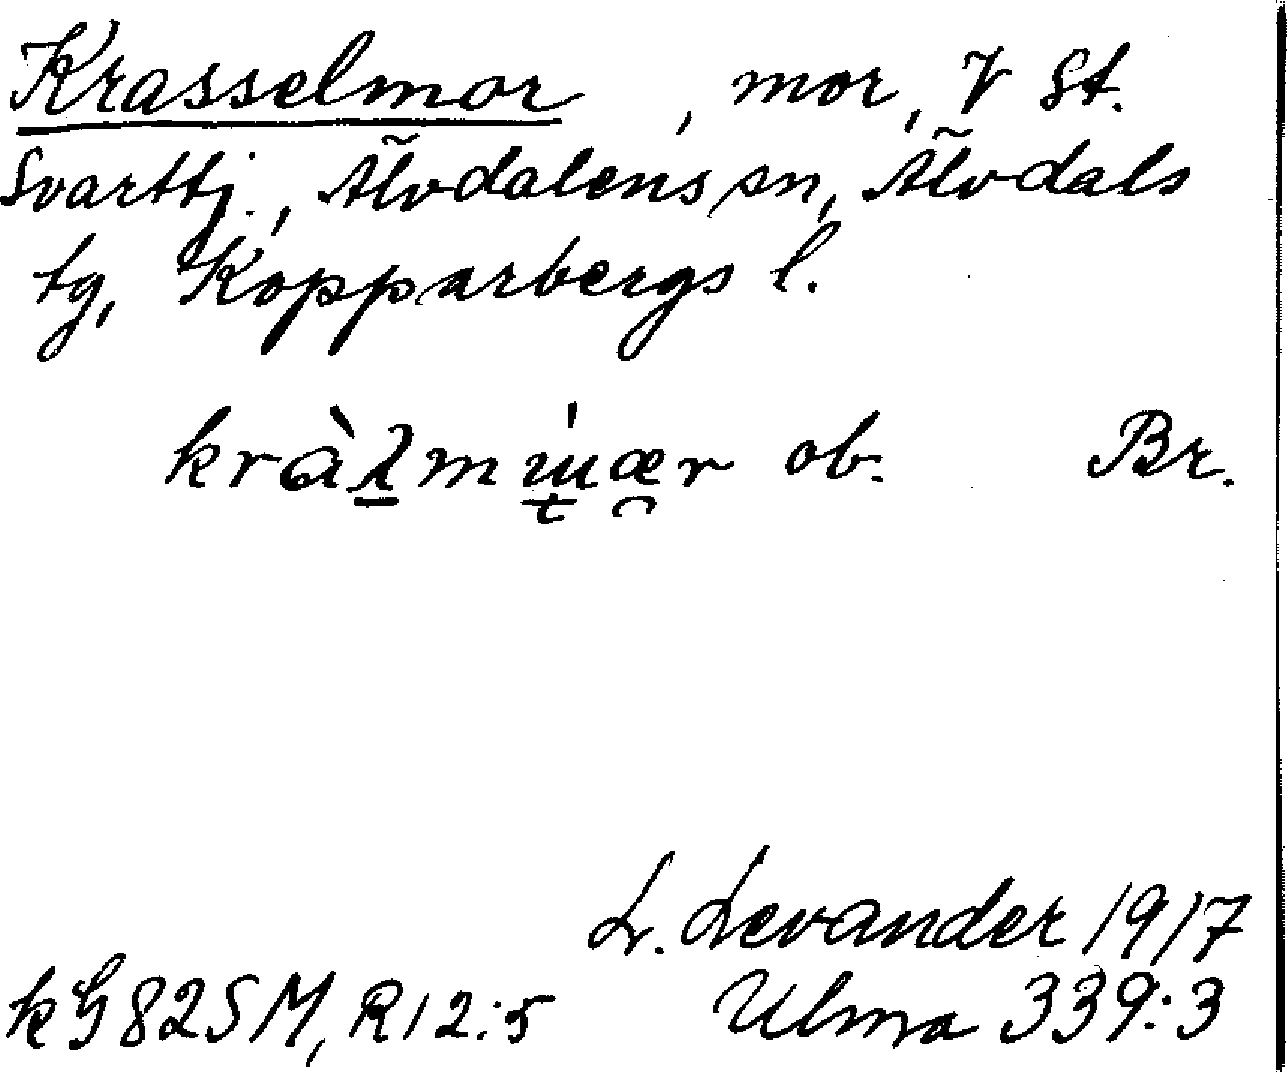 Krasselmor, mor, V St.
Svarttj., Älvdalens sn, Älvdals
tg, Kopparbergs l.
ob. Br.
L. Levander 1917
kG 82SM, R12:5 Ulma 339:3